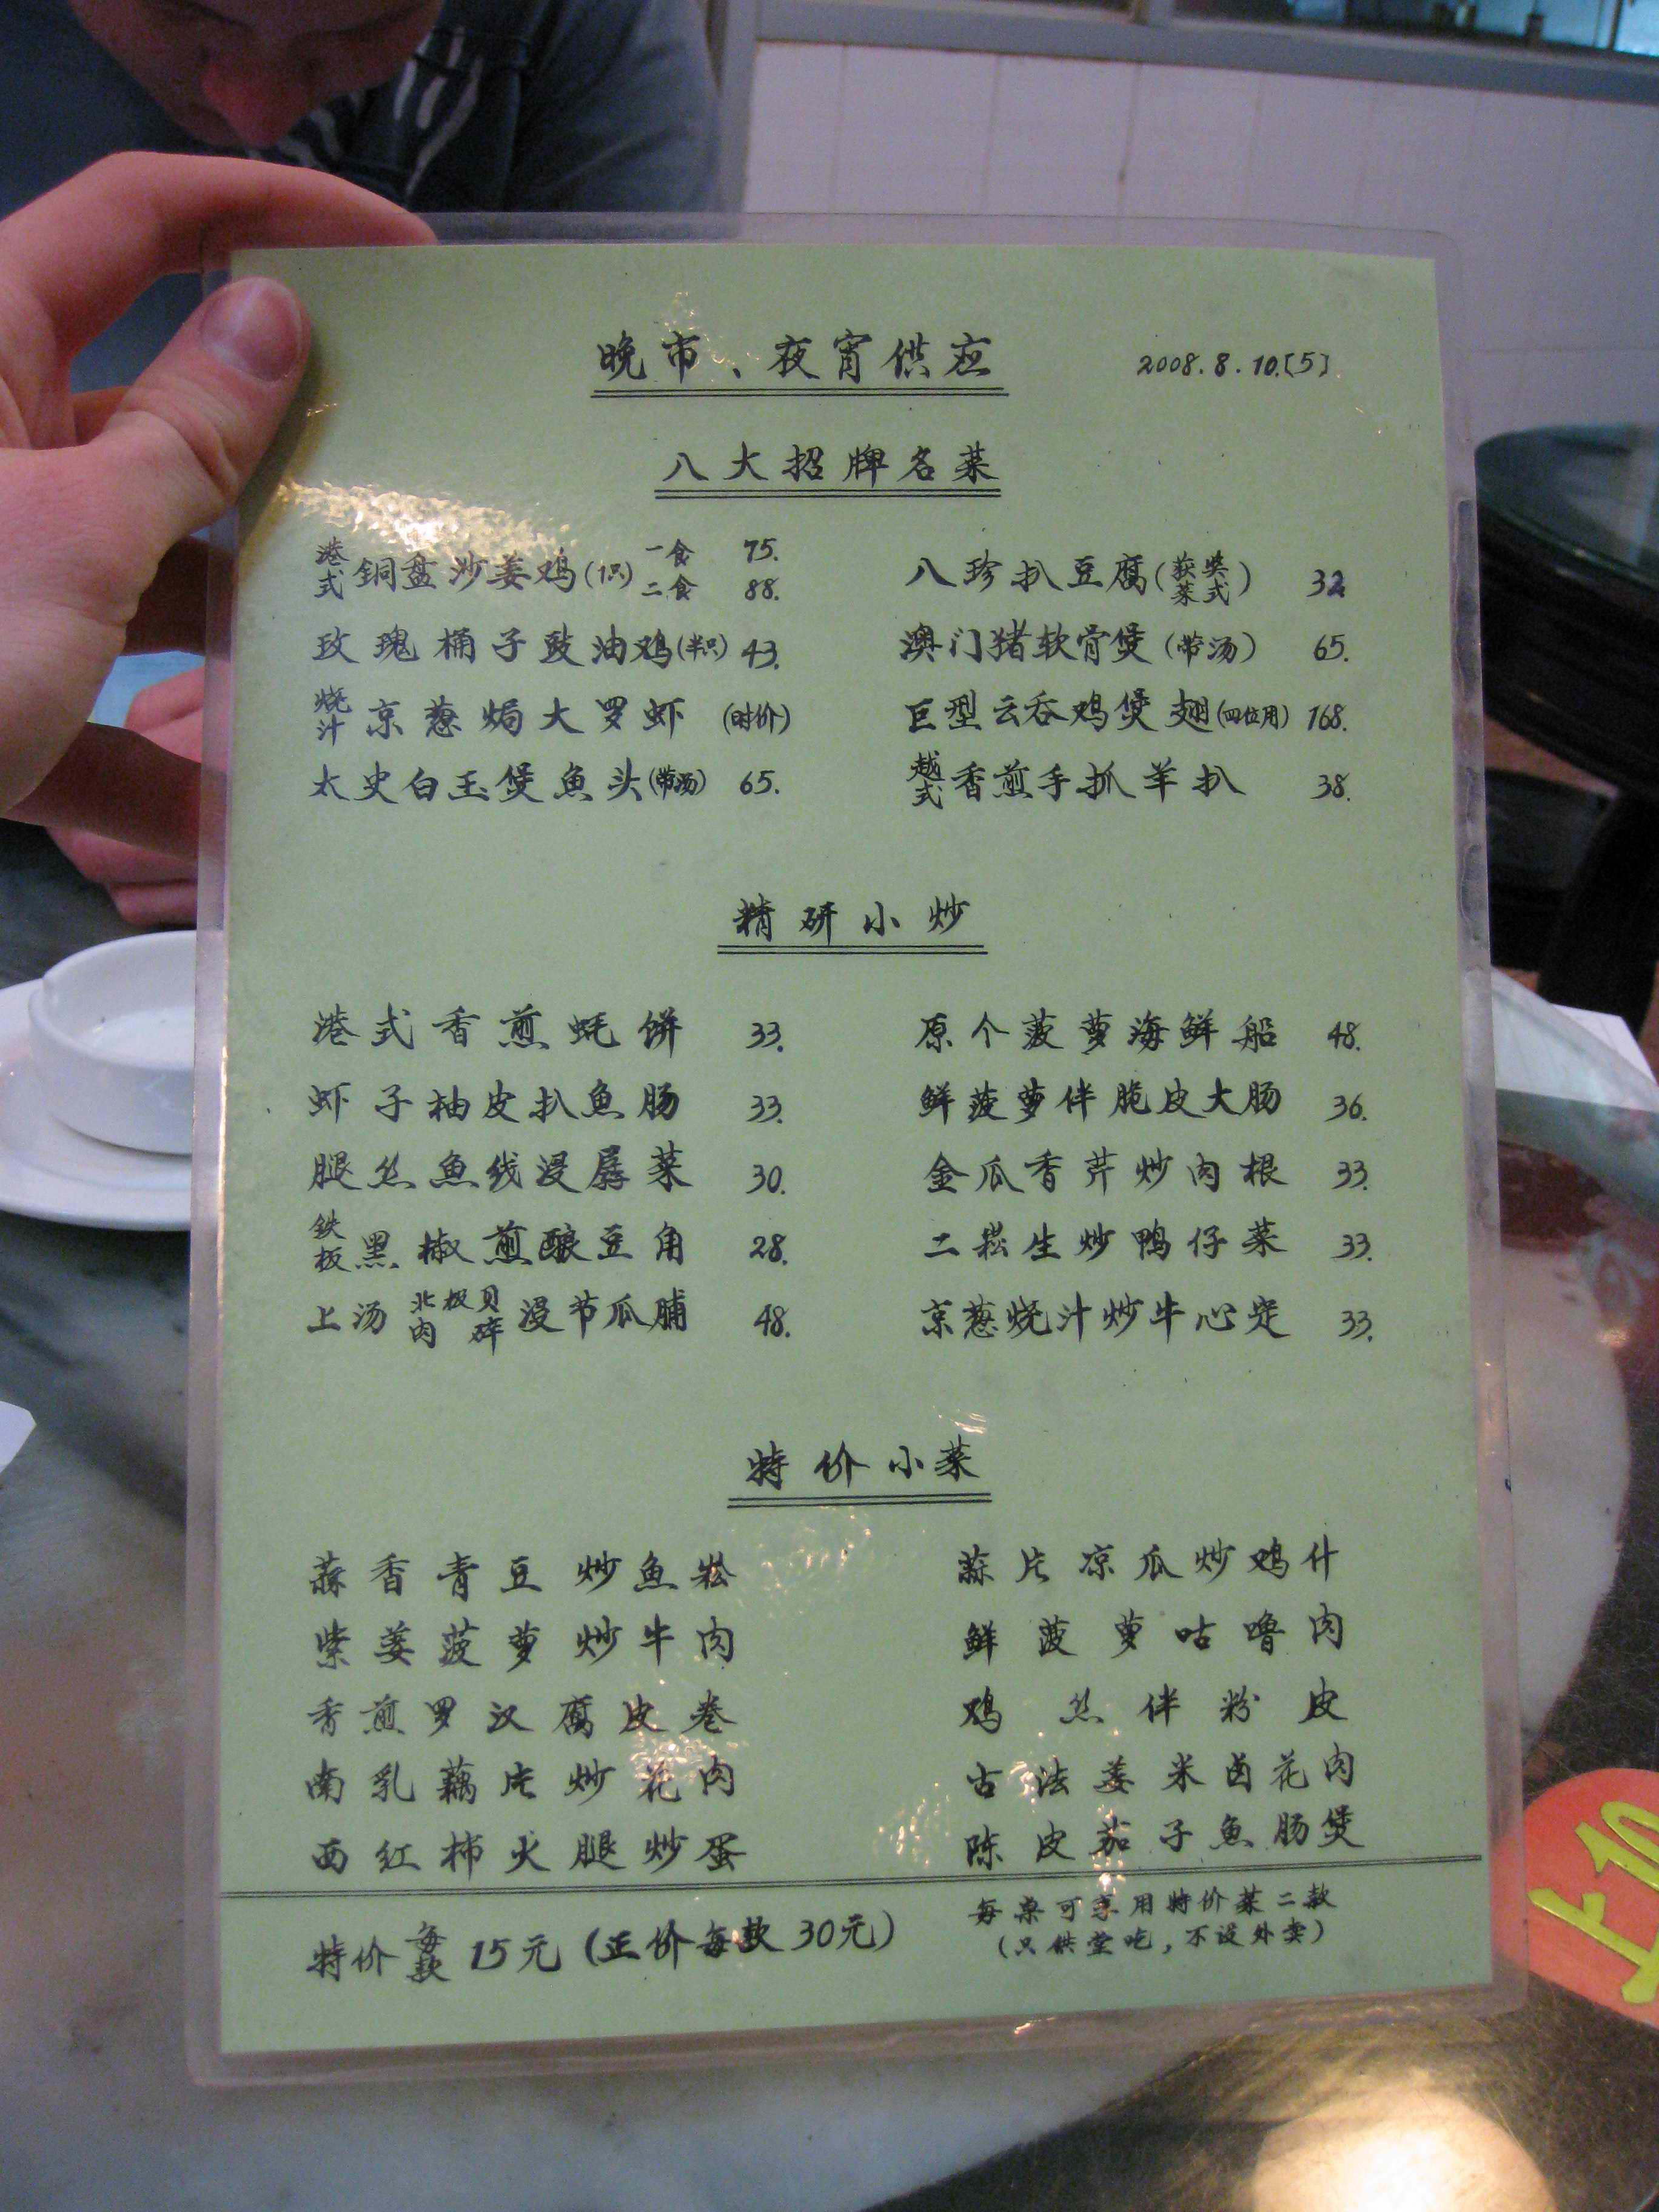 晚市、夜宵供应
2008.8.10.[5]
八大招牌名菜
港式铜盘沙姜鸡(1只) 一食 75. 二食 88.
八珍扒豆腐(获奖菜式) 32
玫瑰桶子豉油鸡(半只) 43.
澳门猪软骨煲(带汤) 65.
烧汁京葱焗大罗虾 (时价)
巨型云吞鸡煲翅(四位用) 168.
太史白玉煲魚头(带汤) 65.
越式香煎手抓羊扒 38.
精研小炒
港式香煎蚝饼 33.
原个菠萝海鲜船 48.
虾子柚皮扒魚肠 33.
鲜菠萝伴脆皮大肠 36.
腿丝魚线浸孱菜 30.
金瓜香芹炒肉根 33.
铁板黑椒煎酿豆角 28.
二崧生炒鸭仔菜 33.
上汤北极贝肉碎浸节瓜脯 48.
京葱烧汁炒牛心定 33.
特价小菜
蒜香青豆炒魚崧
蒜片凉瓜炒鸡什
紫姜菠萝炒牛肉
鲜菠萝咕噜肉
香煎罗汉腐皮卷
鸡丝伴粉皮
南乳藕片炒花肉
古法姜米卤花肉
西红柿火腿炒蛋
陈皮茄子魚肠煲
特价每款15元(正价每款30元)
每桌可享用特价菜二款
(只供堂吃,不设外卖)